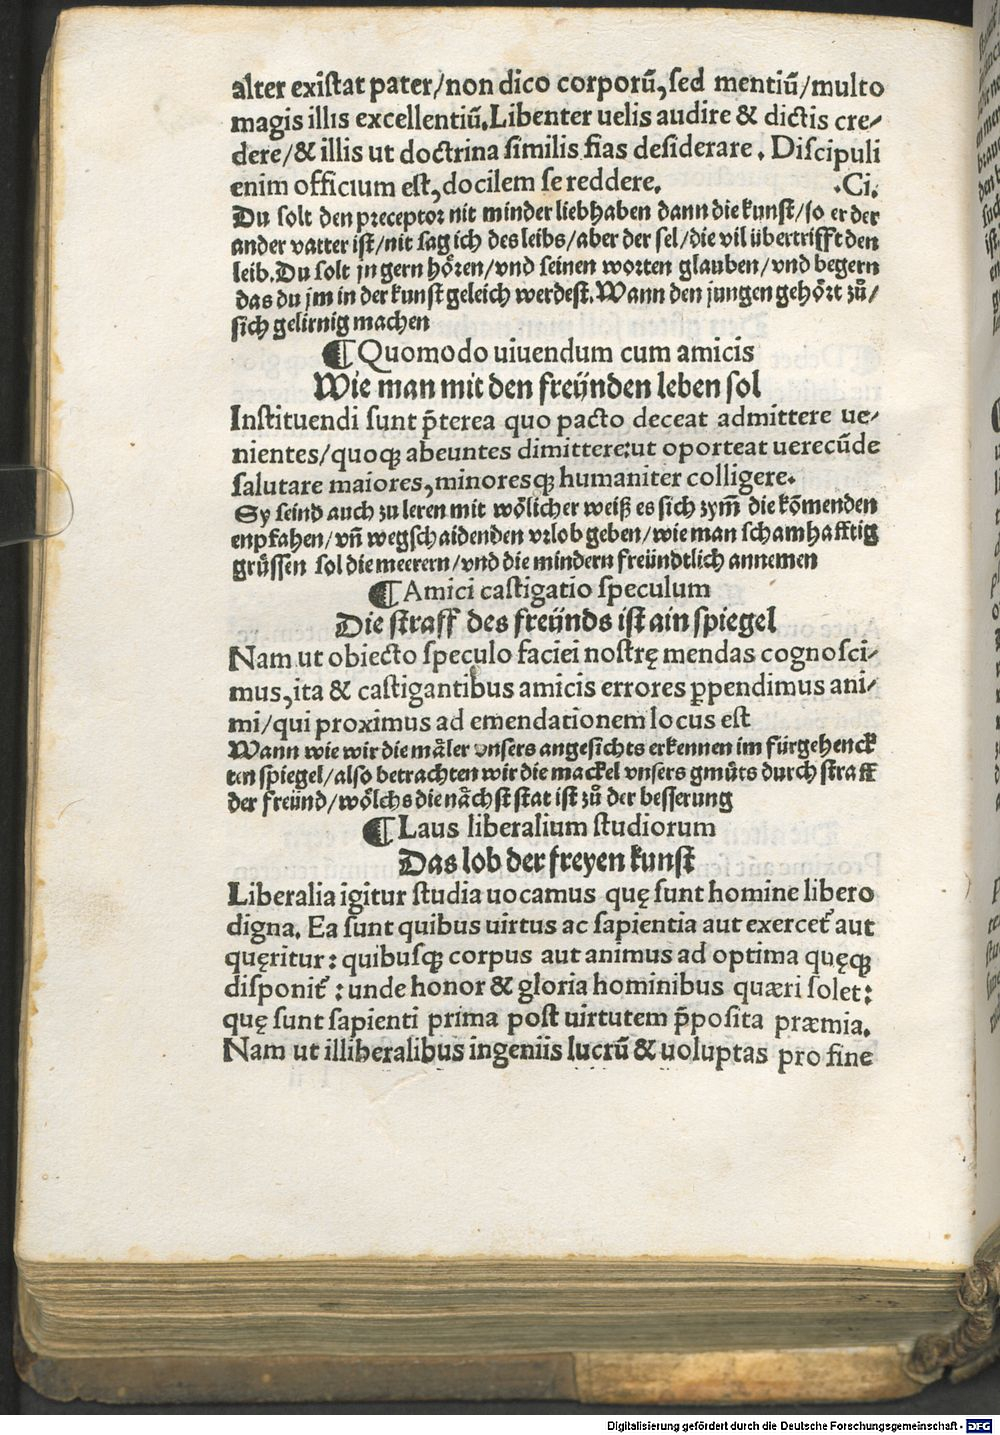 alter existat pater/non dico corporū, sed mentiū/multo
magis illis excellentiū. Libenter uelis audire & dictis cre/
dere/& illis ut doctrina similis fias desiderare. Discipuli
enim officium est, docilem se reddere. .Ci.
Du solt den preceptor nit minder liebhaben dann die kunst/so er der
ander vatter ist/nit sag ich des leibs/aber der sel/die vil übertrifft den
leib. Du solt jn gern hören/vnd seinen worten glauben/vnd begern
das du jm in der kunst geleich werdest. Wann den jungen gehört zů/
sich gelirnig machen
¶ Quomodo uiuendum cum amicis
Wie man mit den freünden leben sol
Instituendi sunt p̄terea quo pacto deceat admittere ue/
nientes/quoqꝫ abeuntes dimittere: ut oporteat uerecūde
salutare maiores, minoresqꝫ humaniter colligere.
Sy seind auch zu leren mit wölicher weiß es sich zym̄ die kōmenden
enpfahen/vn̄ wegschaidenden vrlob geben/wie man schamhafftig
grüssen sol die meerern/vnd die mindern freündtlich annemen
¶ Amici castigatio speculum
Die straff des freünds ist ain spiegel
Nam ut obiecto speculo faciei nostrę mendas cognosci/
mus, ita & castigantibus amicis errores ꝑpendimus ani/
mi/qui proximus ad emendationem locus est
Wann wie wir die mäler vnsers angesichts erkennen im fürgehenck
ten spiegel/also betrachten wir die mackel vnsers gmüts durch straff
der freünd/wölchs die nächst stat ist zů der besserung
¶ Laus liberalium studiorum
Das lob der freyen kunst
Liberalia igitur studia uocamus quę sunt homine libero
digna. Ea sunt quibus uirtus ac sapientia aut exercet᷑ aut
quęritur: quibusqꝫ corpus aut animus ad optima quęqꝫ
disponit᷑: unde honor & gloria hominibus quæri solet:
quę sunt sapienti prima post uirtutem p̄posita præmia.
Nam ut illiberalibus ingeniis lucrū & uoluptas pro fine
Digitalisierung gefördert durch die Deutsche Forschungsgemeinschaft - DFG